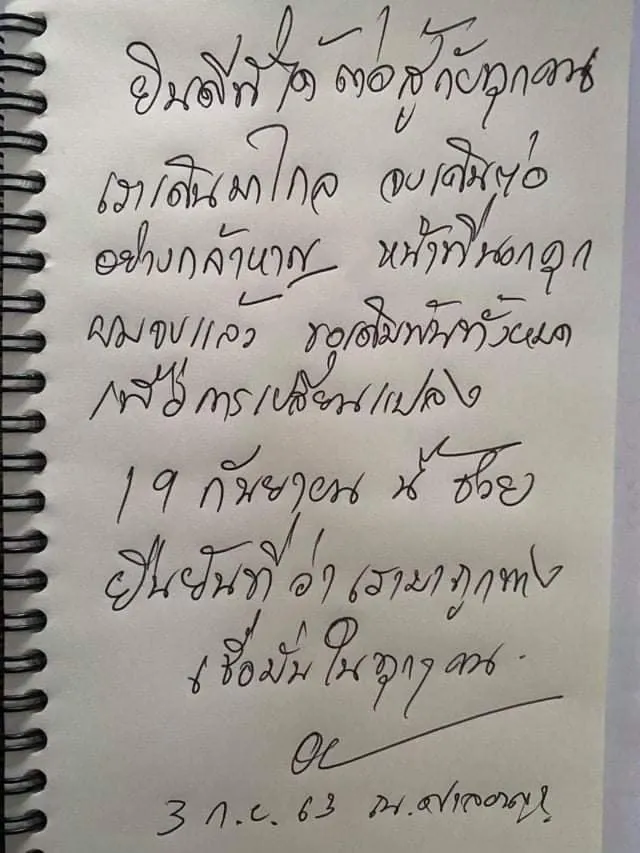 ยินดีที่ได้ต่อสู้กับทุกคน
เราเดินมาไกล จงเดินต่อ
อย่างกล้าหาญ หน้าที่นอกคุก
ผมจบแล้ว ขอเดิมพันทั้งหมด
เพื่อการเปลี่ยนแปลง
19 กันยายน นี้ ช่วย
ยืนยันที ว่า เรามาถูกทาง
เชื่อมั่นในทุกๆ คน.
3 ก.ย. 63 ณ.ศาลอาญา